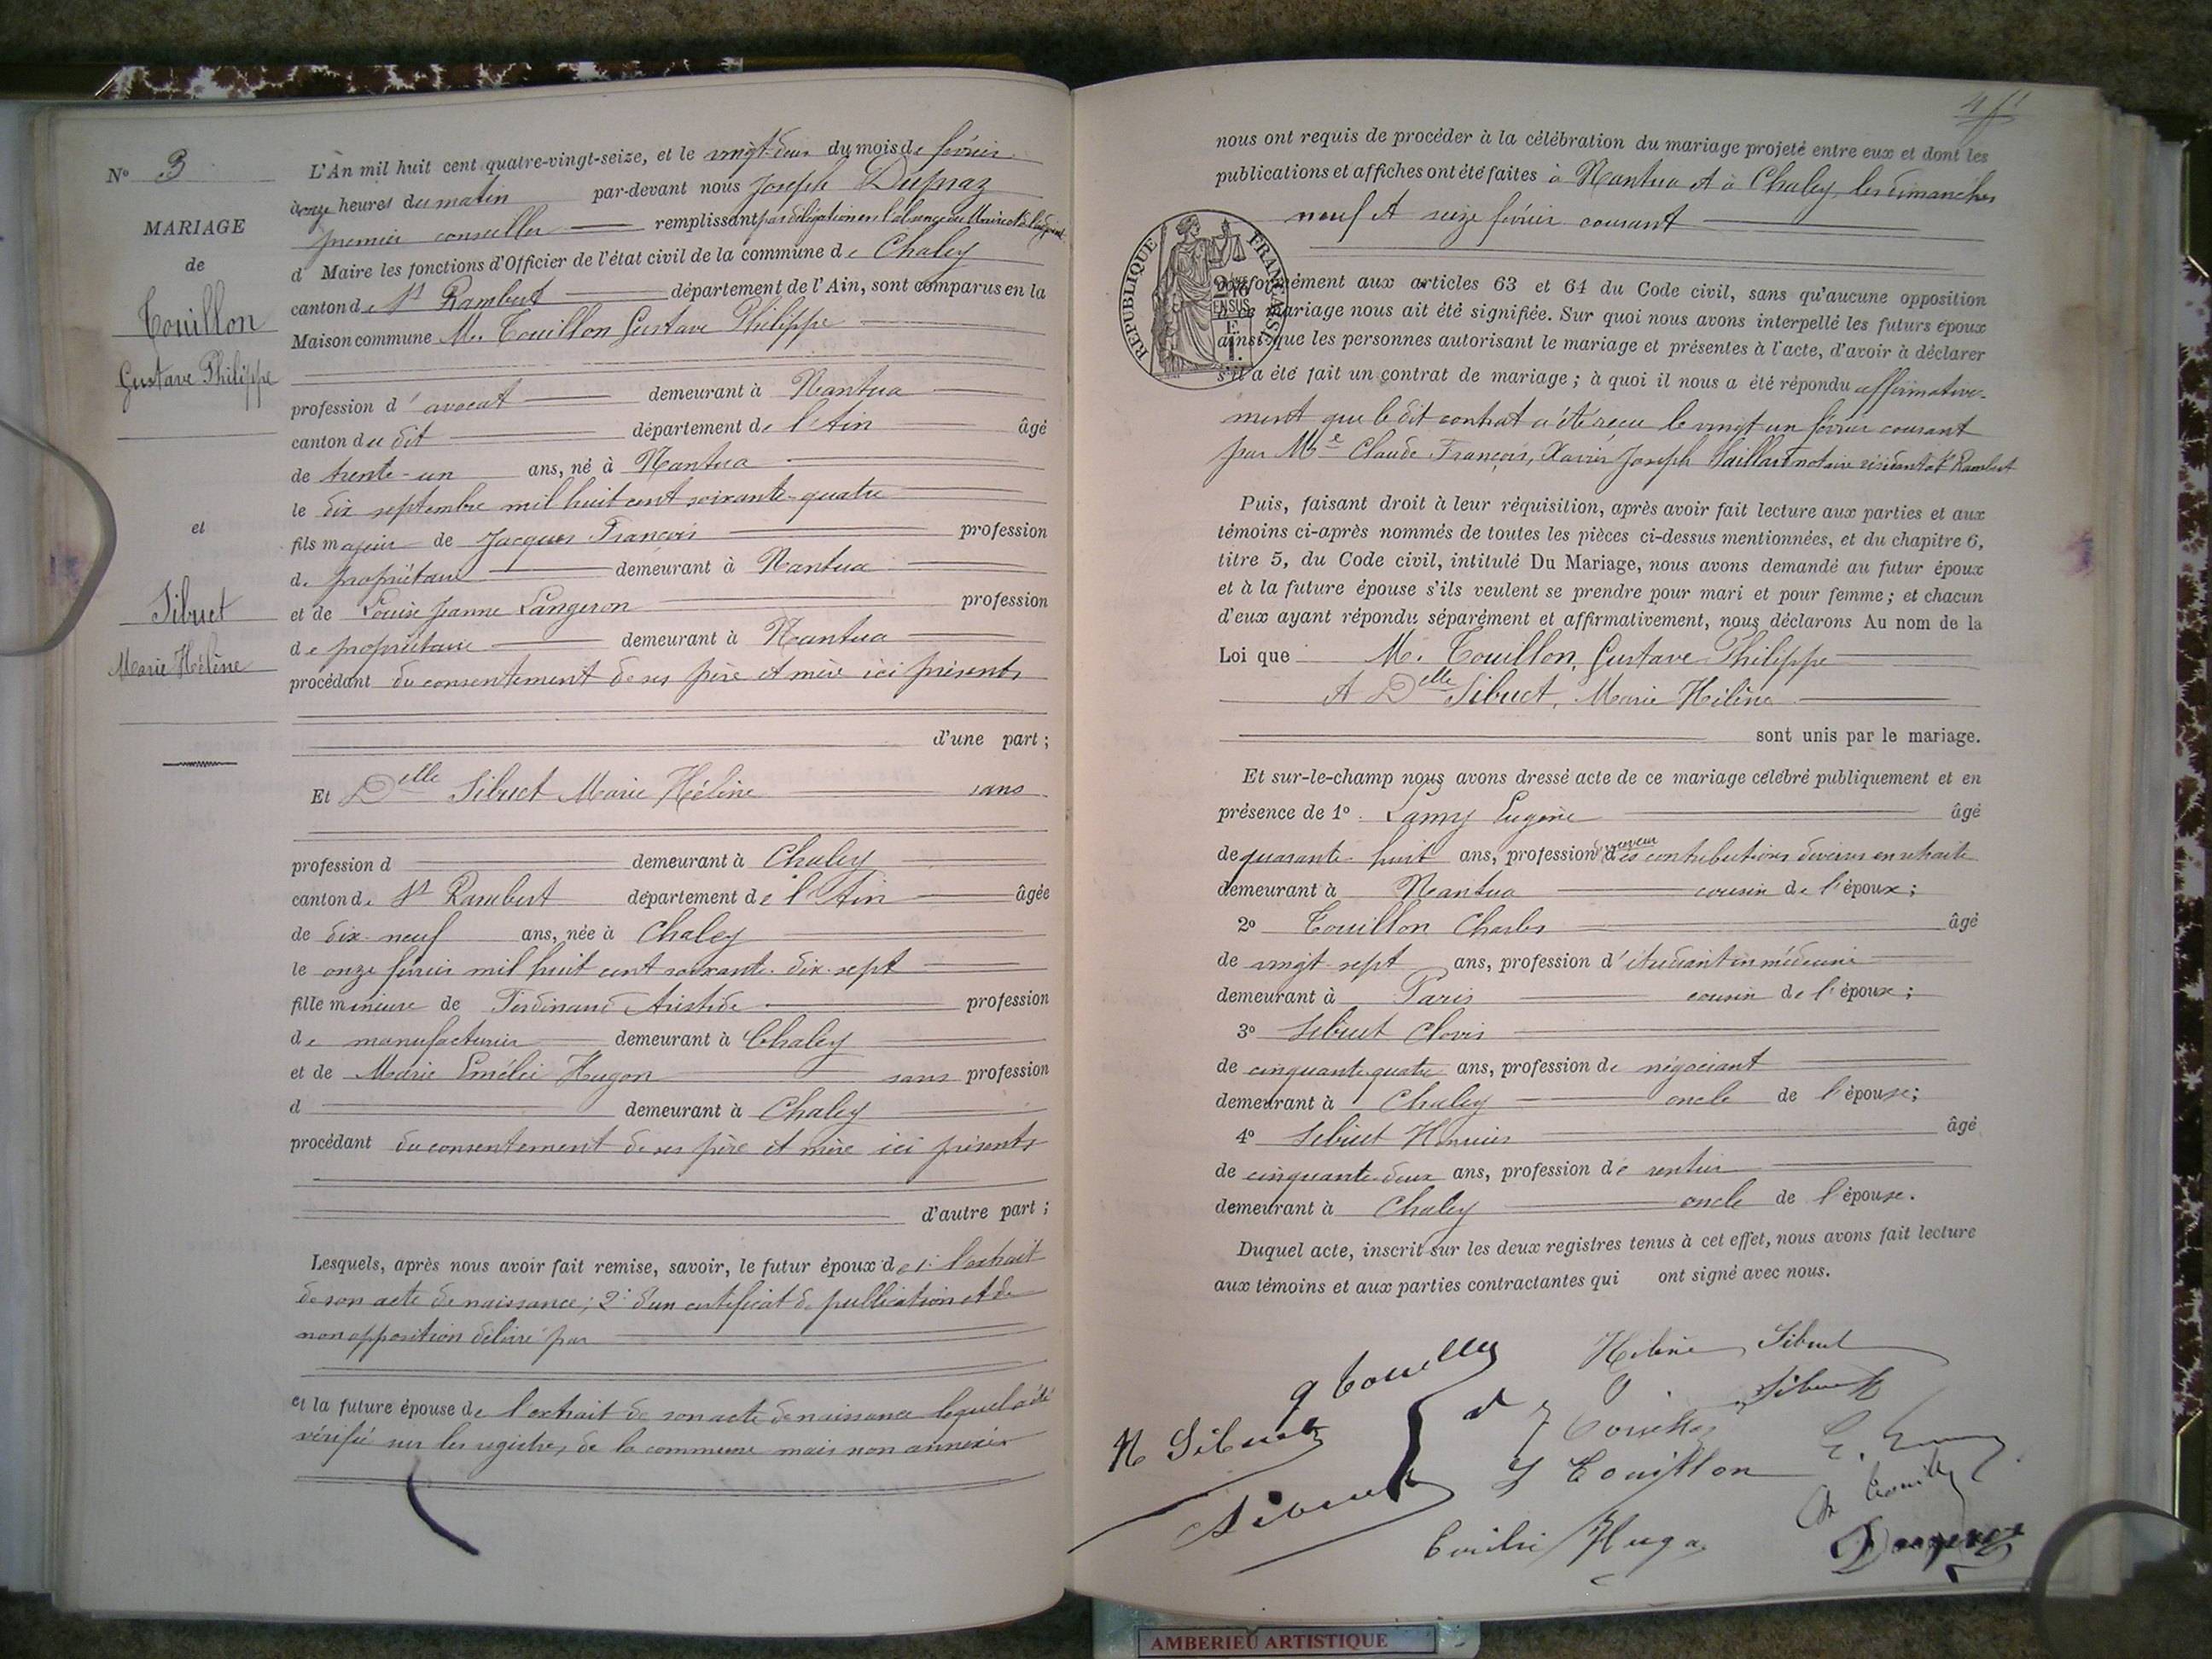 N° 3
MARIAGE
de
Touillon
Gustave Philippe
et
Sibuet
Marie Hélène
L'An mil huit cent quatre-vingt-seize, et le vingt-deux du mois de février
à onze heures du matin par-devant nous Joseph Dupraz
premier conseiller remplissant par délégation en l'absence du Maire et de l'adjoint
d Maire les fonctions d'Officier de l'état civil de la commune de Chaley
canton de St Rambert département de l'Ain, sont comparus en la
Maison commune M. Touillon Gustave Philippe
profession d'avocat demeurant à Nantua
canton du dit département de l'Ain âgé
de trente-un ans, né à Nantua
le dix septembre mil huit cent soixante-quatre
fils majeur de Jacques François profession
de propriétaire demeurant à Nantua
et de Louise Jeanne Langeron profession
de propriétaire demeurant à Nantua
procédant du consentement de ses père et mère ici présents
d'une part;
Et Delle Sibuet Marie Hélène sans
profession d demeurant à Chaley
canton de St Rambert département de l'Ain âgée
de dix-neuf ans, née à Chaley
le onze février mil huit cent soixante-dix-sept
fille mineure de Ferdinand Aristide profession
de manufacturier demeurant à Chaley
et de Marie Emélie Hugon sans profession
d demeurant à Chaley
procédant du consentement de ses père et mère ici présents
d'autre part;
Lesquels, après nous avoir fait remise, savoir, le futur époux de 1° l'extrait
de son acte de naissance; 2° d'un certificat de publication et de
non opposition délivré par
et la future épouse de l'extrait de son acte de naissance lequel a été
vérifié sur les registres de la commune mais non annexé
nous ont requis de procéder à la célébration du mariage projeté entre eux et dont les
publications et affiches ont été faites à Nantua et à Chaley les dimanches
neuf et seize février courant
REPUBLIQUE FRANÇAISE
Conformément aux articles 63 et 64 du Code civil, sans qu'aucune opposition
à ce mariage nous ait été signifiée. Sur quoi nous avons interpellé les futurs époux
ainsi que les personnes autorisant le mariage et présentes à l'acte, d'avoir à déclarer
s'il a été fait un contrat de mariage; à quoi il nous a été répondu affirmative-
ment que le dit contrat a été reçu le vingt un février courant
par Me Claude François, Xavier Joseph notaire résidant à St Rambert
Puis, faisant droit à leur réquisition, après avoir fait lecture aux parties et aux
témoins ci-après nommés de toutes les pièces ci-dessus mentionnées, et du chapitre 6,
titre 5, du Code civil, intitulé Du Mariage, nous avons demandé au futur époux
et à la future épouse s'ils veulent se prendre pour mari et pour femme; et chacun
d'eux ayant répondu séparément et affirmativement, nous déclarons Au nom de la
Loi que M. Touillon, Gustave Philippe
et Delle Sibuet, Marie Hélène
sont unis par le mariage.
Et sur-le-champ nous avons dressé acte de ce mariage célébré publiquement et en
présence de 1° Lamy Eugène âgé
de quarante-huit ans, profession de receveur des contributions diverses en retraite
demeurant à Nantua cousin de l'époux;
2° Touillon Charles âgé
de vingt-sept ans, profession d'étudiant en médecine
demeurant à Paris cousin de l'époux;
3° Sibuet Clovis
de cinquante-quatre ans, profession de négociant
demeurant à Chaley oncle de l'épouse;
4° Sibuet âgé
de cinquante-deux ans, profession de rentier
demeurant à Chaley oncle de l'épouse.
Duquel acte, inscrit sur les deux registres tenus à cet effet, nous avons fait lecture
aux témoins et aux parties contractantes qui ont signé avec nous.
Hélène Sibuet
Sibuet
H Sibuet
Touillon
Sibuet
AMBERIEU ARTISTIQUE